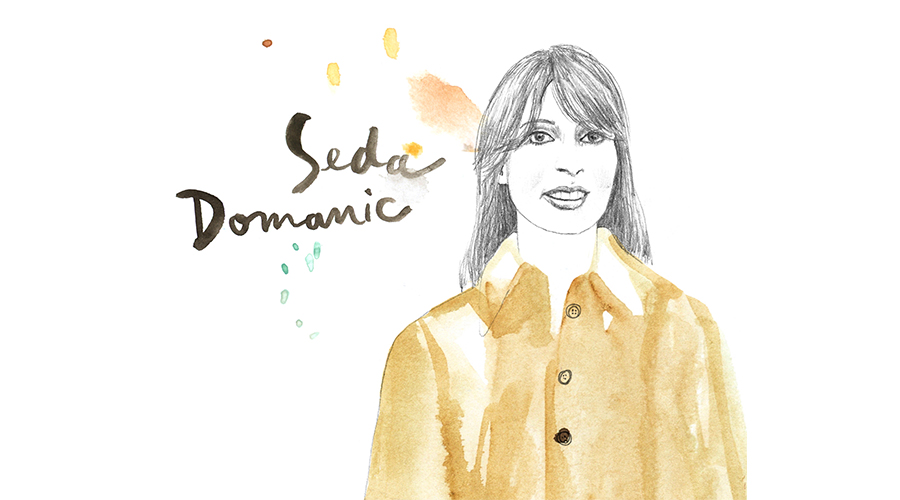 Seda
Domanic